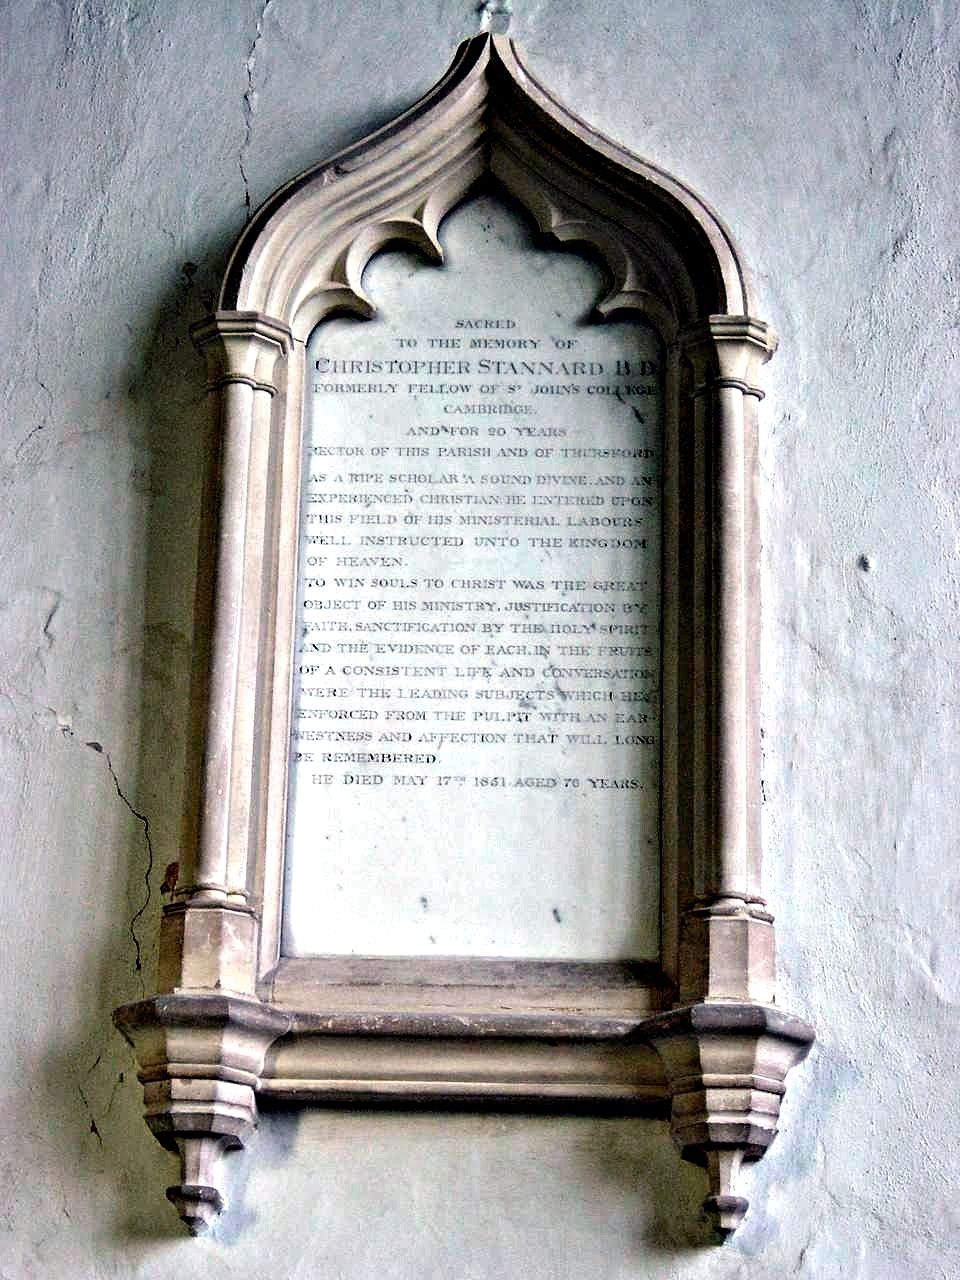 SACRED
TO THE MEMORY OF
CHRISTOPHER STANNARD B.D
FORMERLY FELLOW OF ST JOHN'S COLLEGE
CAMBRIDGE.
AND FOR 20 YEARS
RECTOR OF THIS PARISH AND OF THURSFORD
AS A RIPE SCHOLAR A SOUND DIVINE, AND AN
EXPERIENCED CHRISTIAN; HE ENTERED UPON
THIS FIELD OF HIS MINISTERIAL LABOURS
WELL INSTRUCTED UNTO THE KINGDOM
OF HEAVEN.
TO WIN SOULS TO CHRIST WAS THE GREAT
OBJECT OF HIS MINISTRY, JUSTIFICATION BY
FAITH, SANCTIFICATION BY THE HOLY SPIRIT
AND THE EVIDENCE OF EACH, IN THE FRUITS
OF A CONSISTENT LIFE AND CONVERSATION
WERE THE LEADING SUBJECTS WHICH HE
ENFORCED FROM THE PULPIT WITH AN EAR-
NESTNESS AND AFFECTION THAT WILL LONG
BE REMEMBERED.
HE DIED MAY 17TH 1851 AGED 76 YEARS.